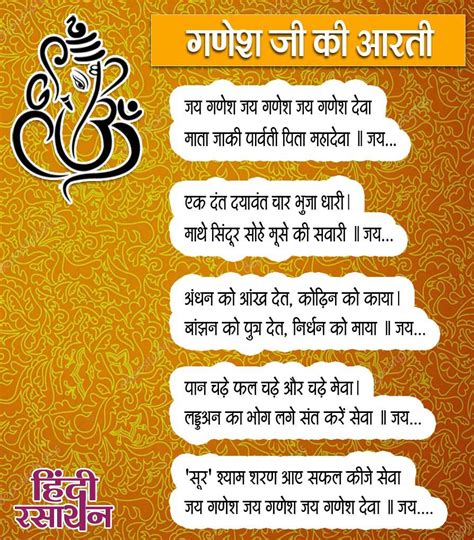 गणेश जी की आरती
जय गणेश जय गणेश जय गणेश देवा
माता जाकी पार्वती पिता महादेवा ॥ जय...
एक दंत दयावंत चार भुजा धारी।
माथे सिंदूर सोहे मूसे की सवारी ॥ जय...
अंधन को आंख देत, कोढ़िन को काया।
बांझन को पुत्र देत, निर्धन को माया ॥ जय...
पान चढ़े फल चढ़े और चढ़े मेवा।
लड्डुअन का भोग लगे संत करें सेवा ॥ जय...
'सूर' श्याम शरण आए सफल कीजे सेवा
जय गणेश जय गणेश जय गणेश देवा ॥ जय....
हिंदी
रसायन